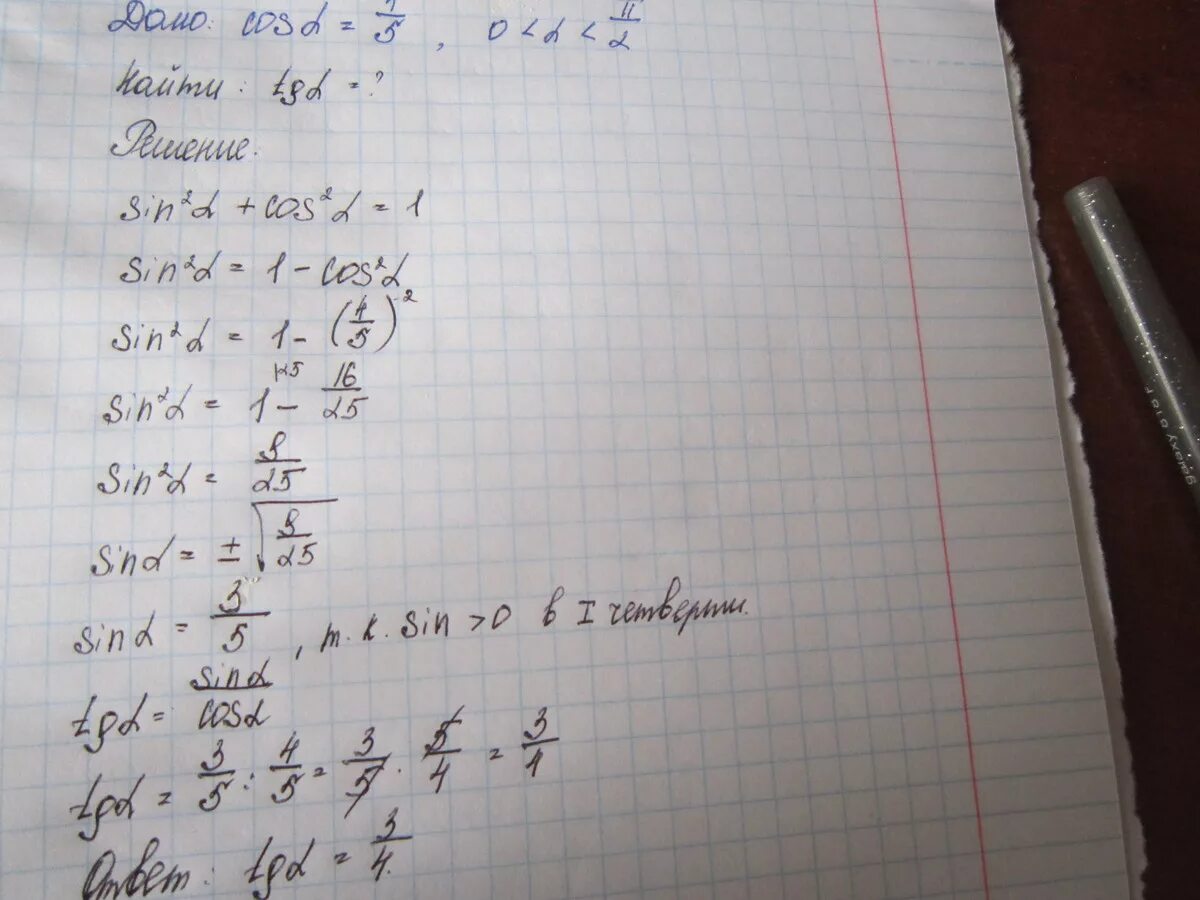 Дано: cosα = 4/5, 0 < α < π/2
Найти: tgα = ?
Решение.
sin²α + cos²α = 1
sin²α = 1 - cos²α
sin²α = 1 - (4/5)²
sin²α = 1 - 16/25
sin²α = 9/25
sinα = ± √(9/25)
sinα = 3/5, т.к. sin > 0 в I четверти.
tgα = sinα/cosα
tgα = 3/5 : 4/5 = 3/5 · 5/4 = 3/4
Ответ: tgα = 3/4.
galaxy 818 F